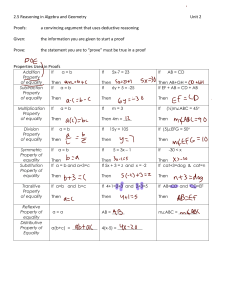 2.5 Reasoning in Algebra and Geometry Unit 2
Proofs: a convincing argument that uses deductive reasoning
Given: the information you are given to start a proof
Prove: the statement you are to "prove" must be true in a proof
POE
Properties Used in Proofs
Addition Property of equality If a = b Then a+c = b+c If 5x-7 = 23 Then 5x=30 If AB = CD Then
Subtraction Property of equality If a = b Then a-c = b-c If 6y + 5 = -25 Then 6y = -30 If EF + AB = CD + AB Then EF = CD
Multiplication Property of equality If a = b Then a(c) = b(c) If Then m = If (½)m∠ABC = 45° Then m∠ABC = 90
Division Property of equality If a = b Then a/c = b/c If 15y = 105 Then y = 7 If (5)∠EFG = 50° Then m∠EFG = 10
Symmetric Property of equality If a = b Then b = a If 5 = 3x – 1 Then 3x-1=5 If -30 = x Then x=-30
Substitution Property of equality If a = b and a+3=c Then b+3 = c If Then If cat+3=dog & cat=n Then n+3=dog
Transitive Property of equality If a=b and b=c Then a=c If Then If Then AB=EF
Reflexive Property of equality a = a AB = AB m∠ABC = m∠ABC
Distributive Property of Equality a(b+c) = ab+ac 4(x-5) = 4x-20